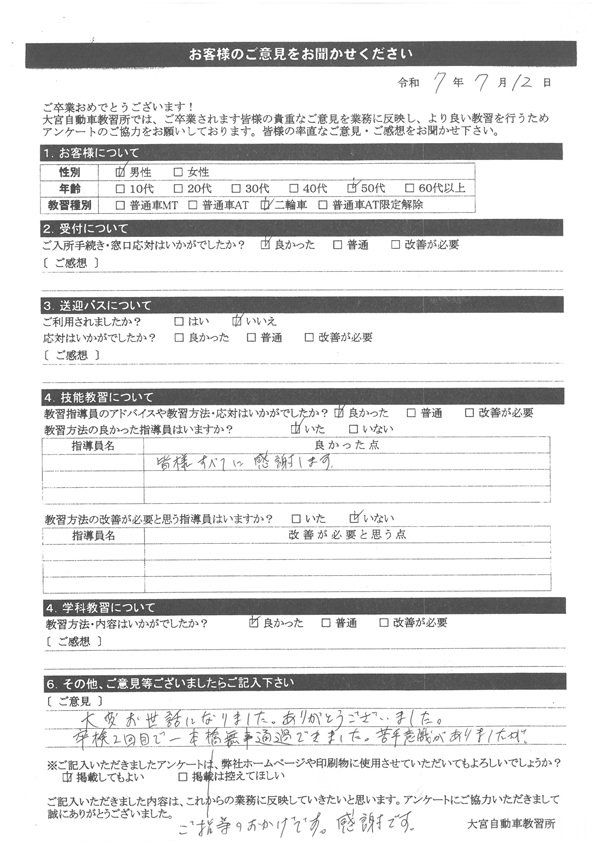 お客様のご意見をお聞かせください
令和 7 年 7 月 12 日
ご卒業おめでとうございます！
大宮自動車教習所では、ご卒業されます皆様の貴重なご意見を業務に反映し、より良い教習を行うため
アンケートのご協力をお願いしております。皆様の率直なご意見・ご感想をお聞かせ下さい。
1．お客様について
性別 ☑男性 □女性
年齢 □10代 □20代 □30代 □40代 ☑50代 □60代以上
教習種別 □普通車MT □普通車AT ☑二輪車 □普通車AT限定解除
2．受付について
ご入所手続き・窓口応対はいかがでしたか？ ☑良かった □普通 □改善が必要
〔 ご感想 〕
3．送迎バスについて
ご利用されましたか？ □はい ☑いいえ
応対はいかがでしたか？ □良かった □普通 □改善が必要
〔 ご感想 〕
4．技能教習について
教習指導員のアドバイスや教習方法・応対はいかがでしたか？ ☑良かった □普通 □改善が必要
教習方法の良かった指導員はいますか？ ☑いた □いない
指導員名 良かった点
皆様すべてに感謝します。
教習方法の改善が必要と思う指導員はいますか？ □いた ☑いない
指導員名 改善が必要と思う点
4．学科教習について
教習方法・内容はいかがでしたか？ ☑良かった □普通 □改善が必要
〔 ご感想 〕
6．その他、ご意見等ございましたらご記入下さい
〔 ご意見 〕
大変お世話になりました。ありがとうございました。
卒検2回目で一本橋無事通過できました。苦手意識がありましたが、
※ご記入いただきましたアンケートは、弊社ホームページや印刷物に使用させていただいてもよろしいでしょうか？
☑掲載してもよい □掲載は控えてほしい
ご記入いただきました内容は、これからの業務に反映していきたいと思います。アンケートにご協力いただきまして
誠にありがとうございました。
ご指導のおかげです。感謝です。
大宮自動車教習所